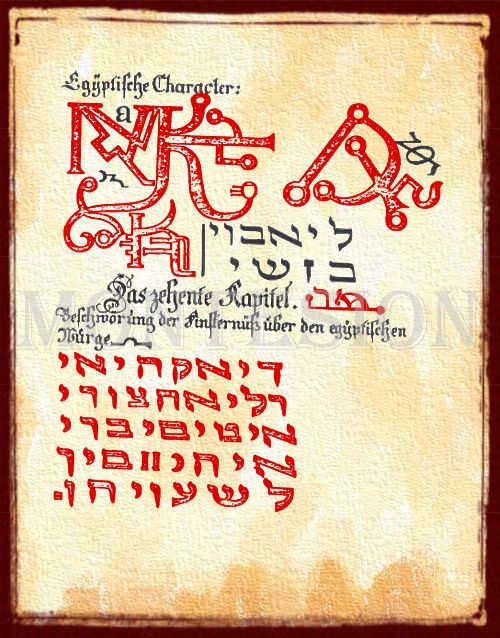 Egÿptische Character:
a
ליאבוי
בזשי
Das zehente Kapitel.
Beschwörung der Finsternüß über den egÿptischen
Würge
דיאקהיאי
רליאחצורי
איטיםיברי
לשעויחן.
MONTESION